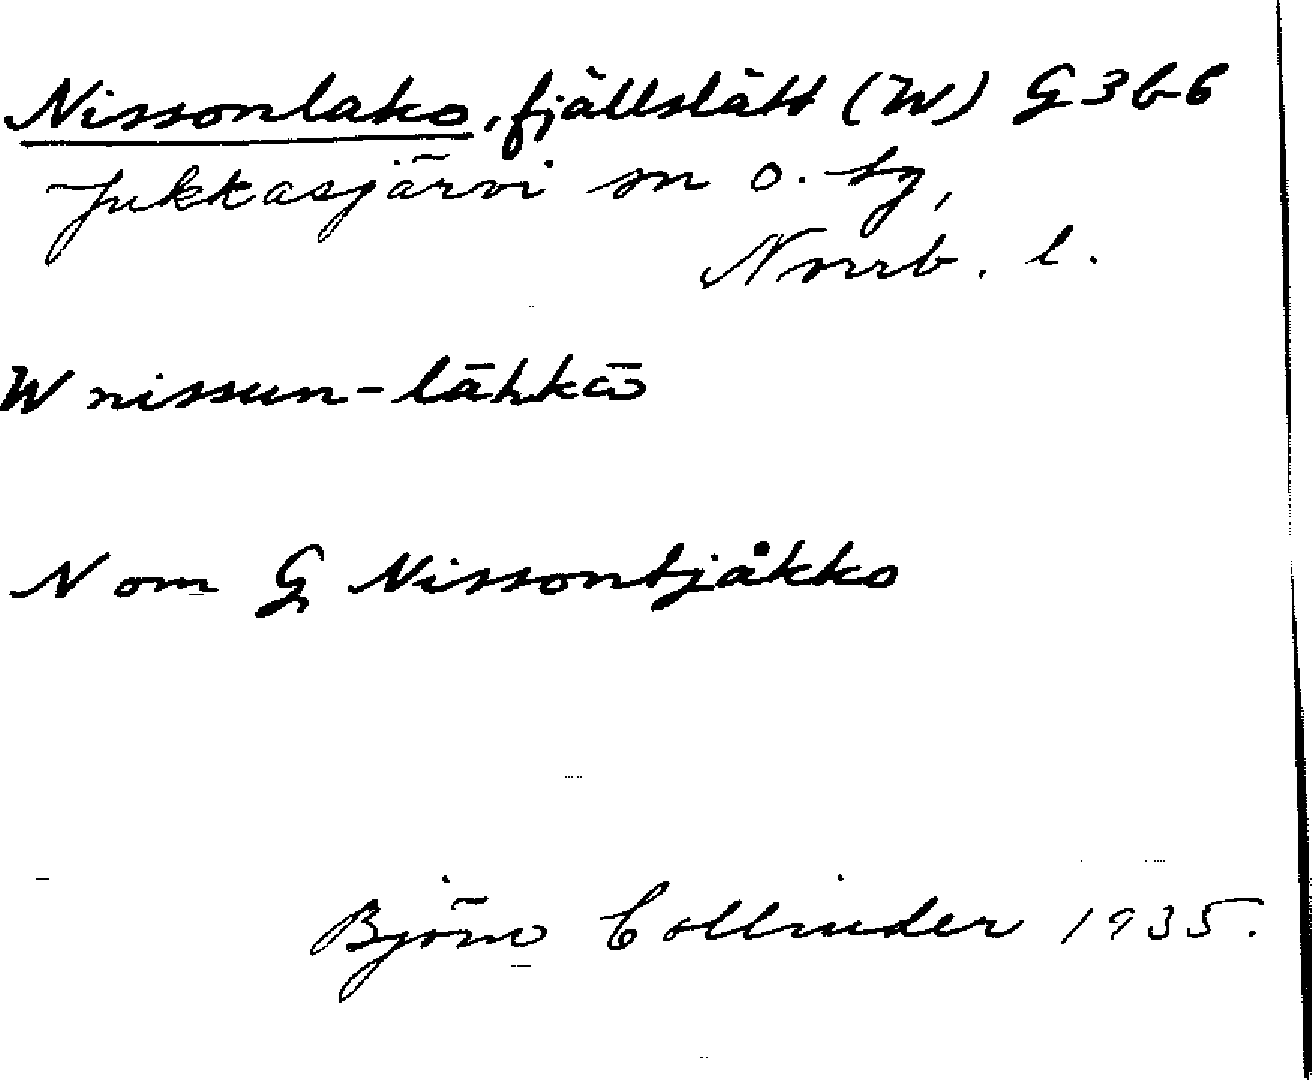 Nissonlako, fjällslätt (W) G 3 b-6
Jukkasjärvi sn o. tg,
Norrb. l.
W nissun-lāhkō
N om G Nissontjåkko
Björn Collinder 1935.